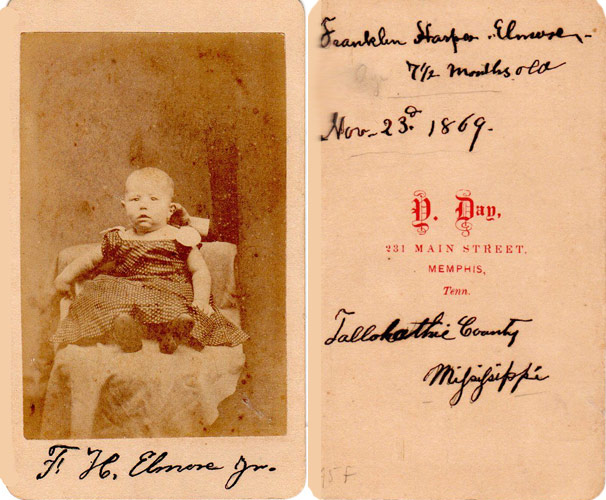 F. H. Elmore Jr.
Franklin Harper Elmore
7 1/2 Months old
Nov. 23d. 1869.
Y. Day,
231 MAIN STREET,
MEMPHIS,
Tenn.
Tallohathie County
Mississippi